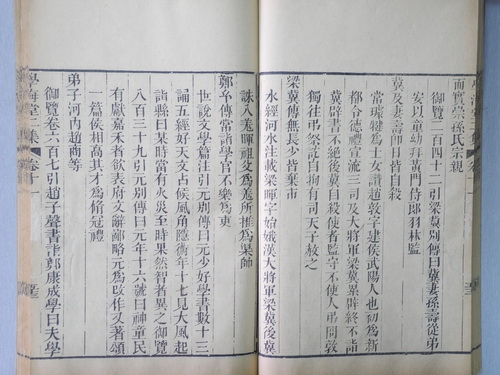 而實崇孫氏宗親
御覽二百四十二引梁冀別傳曰冀妻孫壽從弟
安以童幼拜黃門侍郎羽林監
冀及妻壽卽日皆自殺
常璩犍為士女讚趙敦字建侯武陽人也初為新
都令德禮宣流三司及大將軍梁冀累辟終不詣
冀辟書不絕後冀自殺使者監守不使人弔問敦
獨往弔祭訖自拘有司天子赦之
梁冀傳無長少皆棄市
水經河水注載梁暉字始娥漢大將軍梁冀後冀
誅入羌暉祖父為羌所推為渠帥
鄭玄傳常詣學官不樂為吏
世說文學篇注引元別傳曰元少好學書數十三
誦五經好天文占候風角隱術年十七見大風起
詣縣曰某時當有火災至時果然智者異之御覽
八百三十九引別傳曰元年十六號曰神童民
有獻嘉禾者欲表府文辭鄙略元為改作又著頌
一篇侯相高其才為脩冠禮
弟子河內趙商等
御覽卷六百七引趙子聲書詣鄭康成學曰夫學
學海堂二集 卷十一